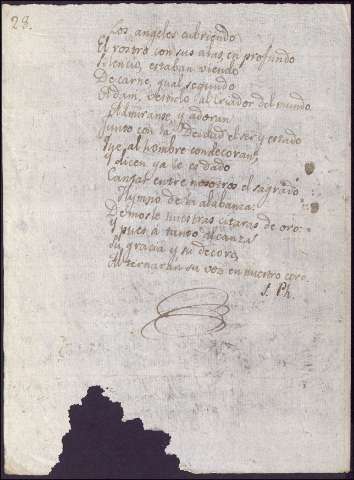 28.
Los angeles cubriendo
El rostro con sus alas, en profundo
Silencio, estaban viendo
De carne, qual segundo
Adam, vestido al Criador del mundo.
Admiranse, y adoran
Junto con la Deidad el ser y estado
Que al hombre condecoran,
Y dicen ya le es dado
Cantar entre nosotros el sagrado
Hymno de la alabanza:
Demosle nuestras citaras de oro:
Y pues á tanto alcanza
Su gracia y su decoro,
Alternarán su voz en nuestro coro.
S. Ph.